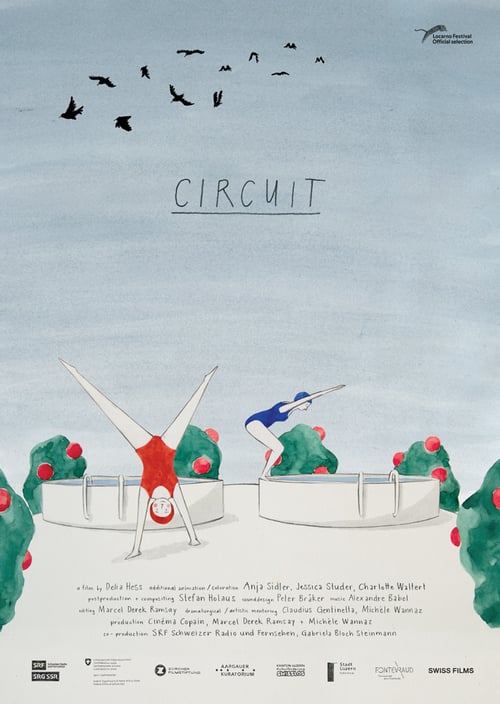 Locarno Festival
Official selection
CIRCUIT
a film by Delia Hess additional animation / coloration Anja Sidler, Jessica Studer, Charlotte Waltert
postproduction + compositing Stefan Holaus sounddesign Peter Bräker music Alexandre Babel
editing Marcel Derek Ramsay dramaturgical / artistic mentoring Claudius Gentinella, Michèle Wannaz
production Cinéma Copain, Marcel Derek Ramsay + Michèle Wannaz
co-production SRF Schweizer Radio und Fernsehen, Gabriela Bloch Steinmann
SRF
SRG SSR
ZÜRCHER
FILMSTIFTUNG
AARGAUER
KURATORIUM
SWISSLOS
Stadt
Luzern
FONTEVRAUD
SWISS FILMS